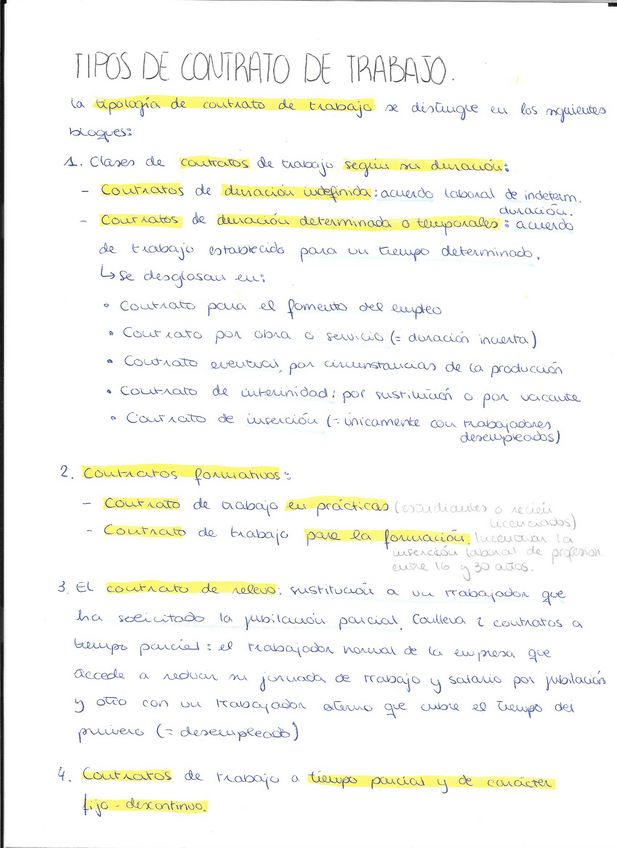 TIPOS DE CONTRATO DE TRABAJO.
La tipología de contrato de trabajo se distingue en los siguientes
bloques:
1. Clases de contratos de trabajo según su duración:
- Contratos de duración indefinida: acuerdo laboral de indeterm.
duración.
- Contratos de duración determinada o temporales: acuerdo
de trabajo establecido para un tiempo determinado.
↳ Se desglosan en:
• Contrato para el fomento del empleo
• Contrato por obra o servicio (= duración incierta)
• Contrato eventual, por circunstancias de la producción
• Contrato de interinidad: por sustitución o por vacante
• Contrato de inserción (= únicamente con trabajadores
desempleados)
2. Contratos formativos:
- Contrato de trabajo en prácticas (estudiantes o recién
licenciados)
- Contrato de trabajo para la formación. Incentivar la
inserción laboral de profesion.
entre 16 y 30 años.
3. El contrato de relevo: sustitución a un trabajador que
ha solicitado la jubilación parcial. Conlleva 2 contratos a
tiempo parcial: el trabajador normal de la empresa que
accede a reducir su jornada de trabajo y salario por jubilación
y otro con un trabajador externo que cubre el tiempo del
primero (= desempleado)
4. Contratos de trabajo a tiempo parcial y de carácter
fijo-discontinuo.